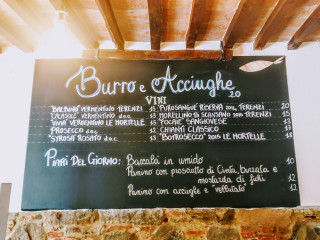 Burro e Acciughe
2.0
VINI
"BALBINO" VERMENTINO TERENZI 15
CALASOLE VERMENTINO d.o.c. 15
"VIVIA" VERMENTINO LE MORTELLE 18
PROSECCO d.o.c. 12
STROSA ROSATO d.o.c. 13
PUROSANGUE RISERVA TERENZI 20
MORELLINO DI SCANSANO TERENZI 15
"POCHE" SANGIOVESE 13
CHIANTI CLASSICO 13
"BOTROSECCO" 2015 LE MORTELLE 18
PIATTI DEL GIORNO: Baccalà in umido 10
Panino con prosciutto di Cinta, burrata e
mostarda di fichi 12
Panino con acciughe e "vellutata" 12